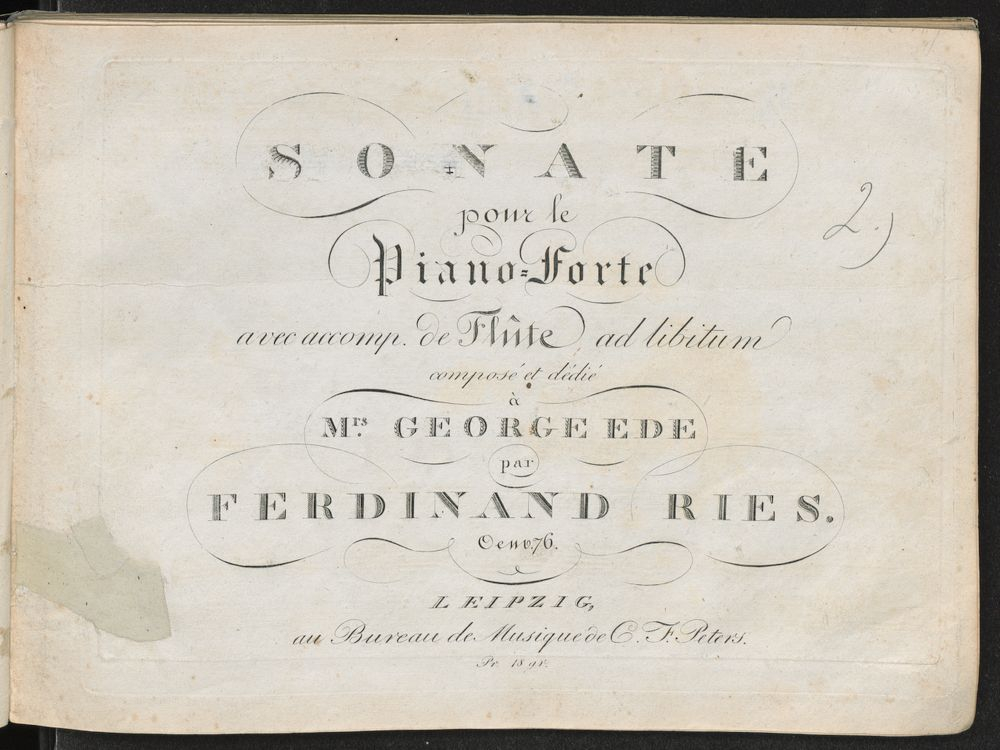 SONATE
pour le
Piano=Forte
avec accomp. de Flûte ad libitum
composé et dédié
à
Mrs. GEORGE EDE
par
FERDINAND RIES.
Oeuv. 76.
LEIPZIG,
au Bureau de Musique de C. F. Peters.
Pr. 18 gr.
2.)